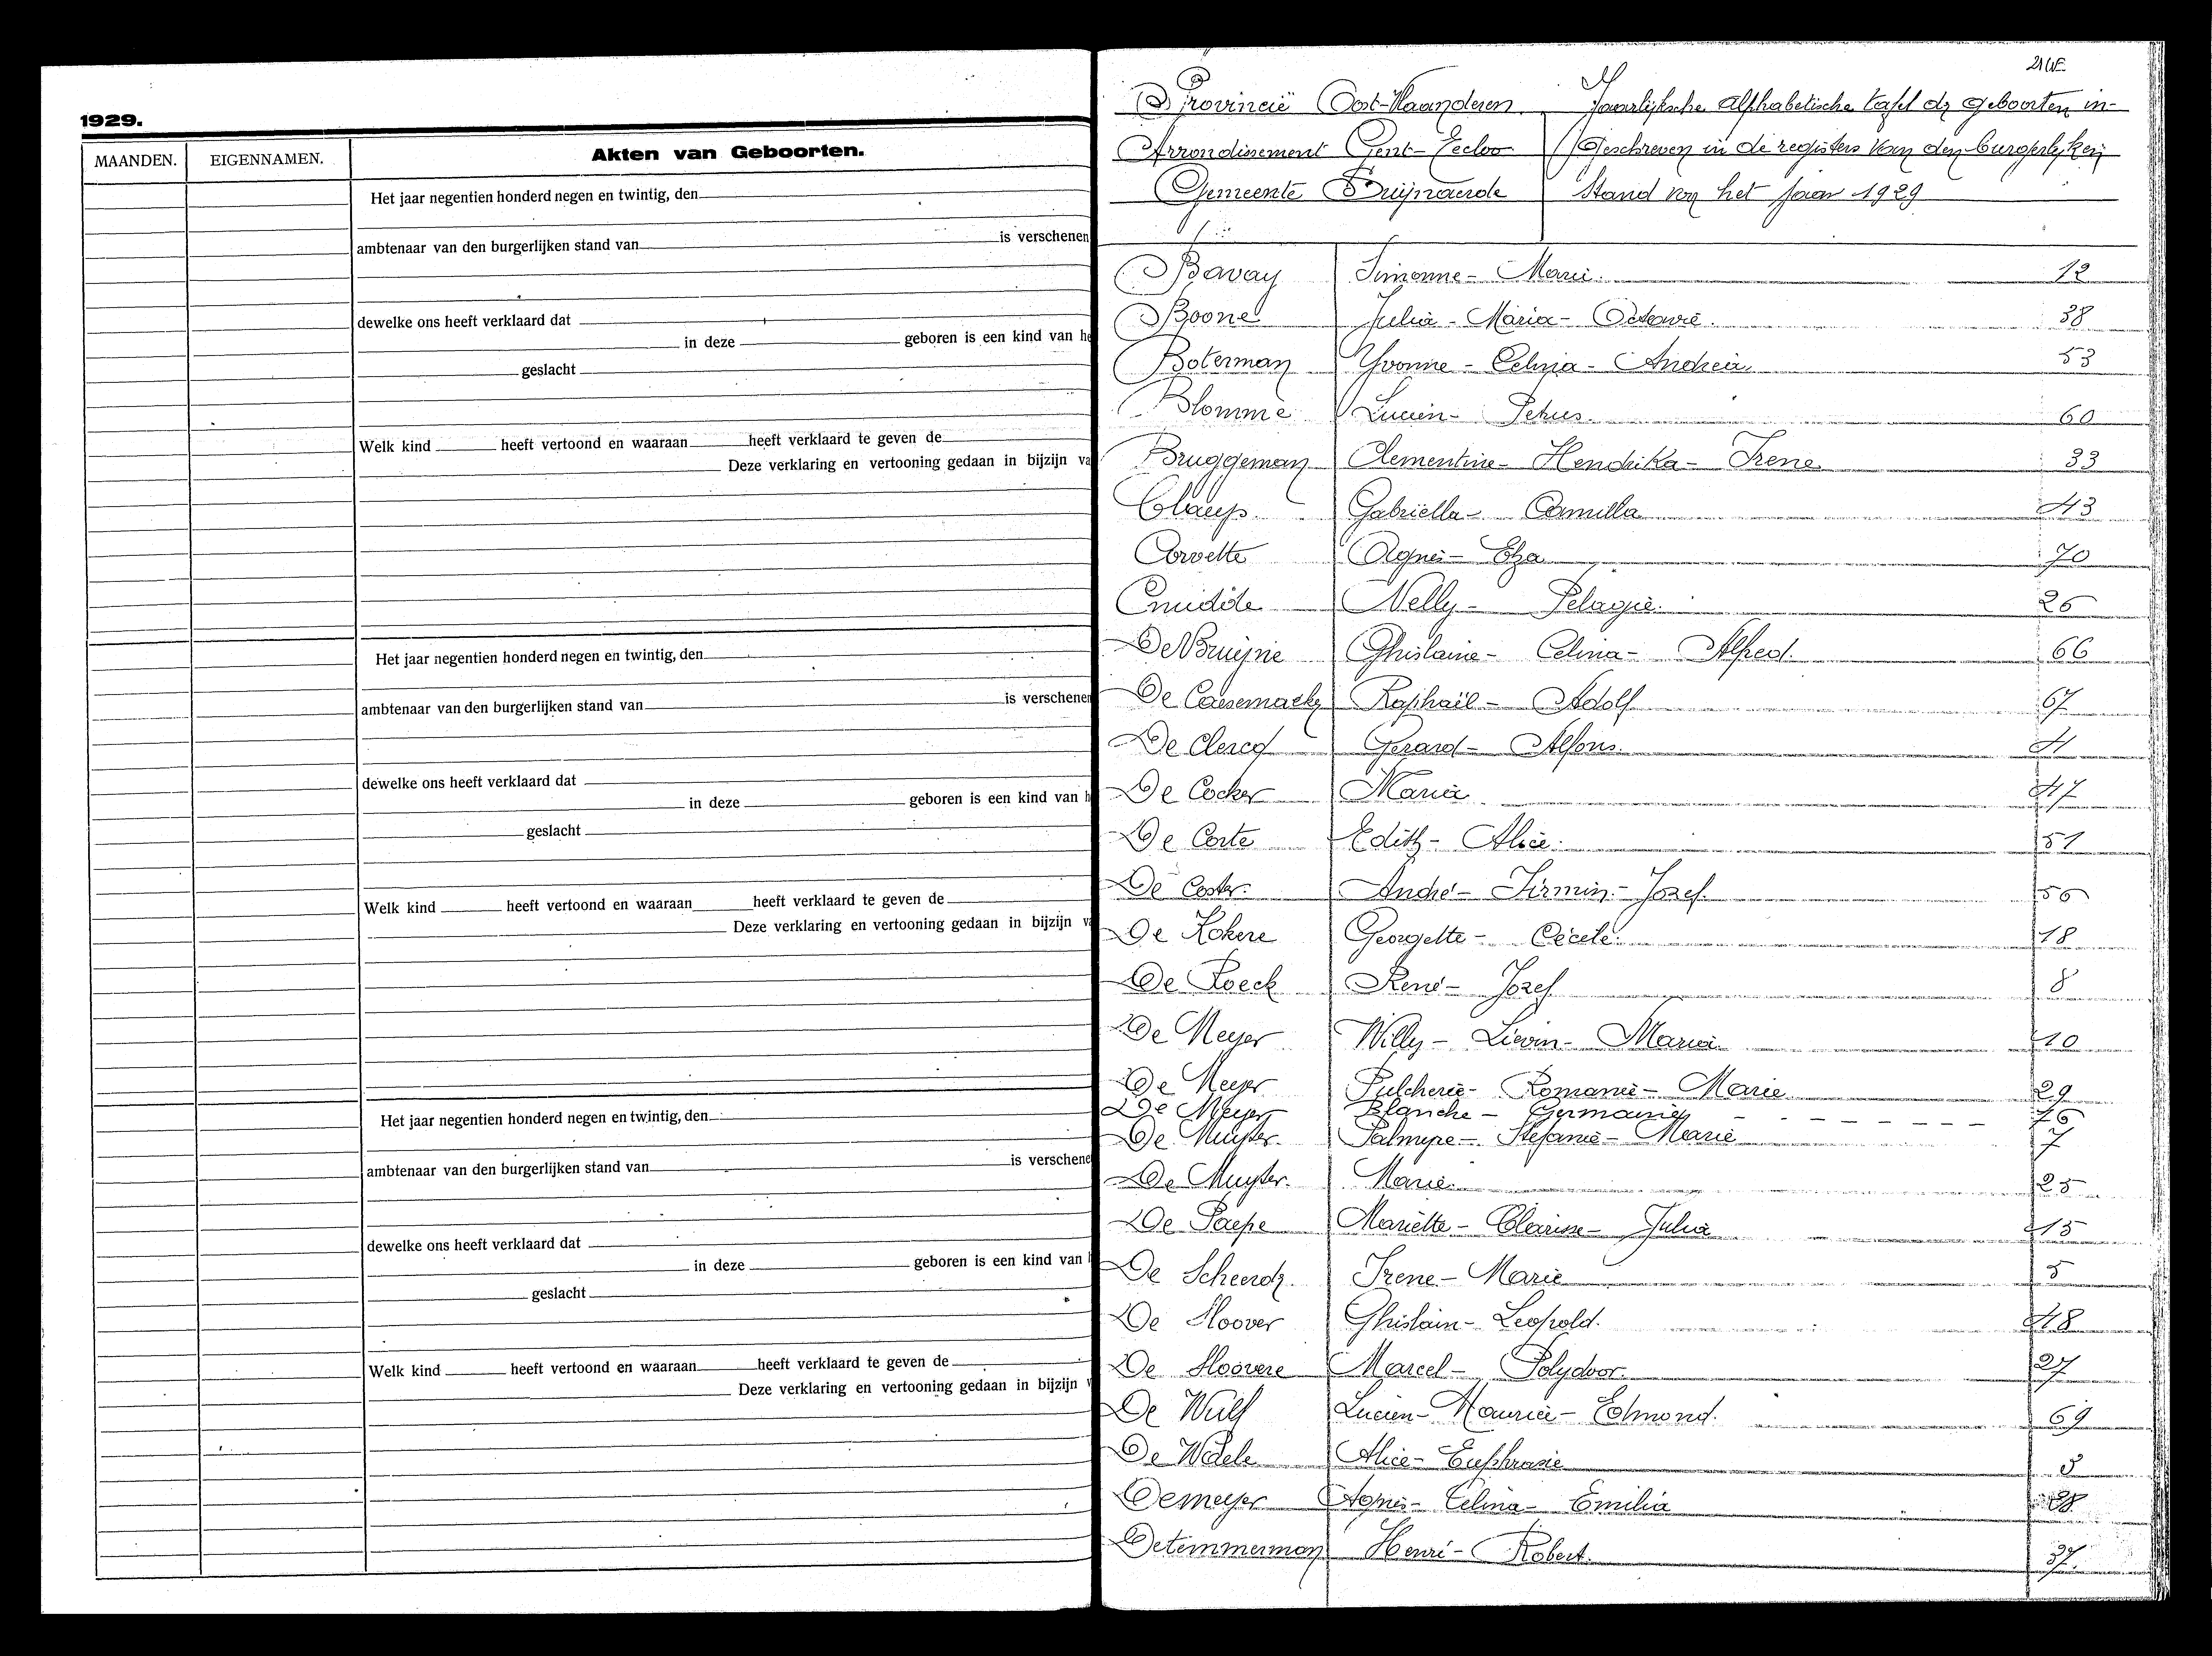 1929.
MAANDEN. EIGENNAMEN. Akten van Geboorten.
Het jaar negentien honderd negen en twintig, den
ambtenaar van den burgerlijken stand van is verschenen
dewelke ons heeft verklaard dat
in deze geboren is een kind van he
geslacht
Welk kind heeft vertoond en waaraan heeft verklaard te geven de
Deze verklaring en vertooning gedaan in bijzijn va
Het jaar negentien honderd negen en twintig, den
ambtenaar van den burgerlijken stand van is verschenen
dewelke ons heeft verklaard dat
in deze geboren is een kind van h
geslacht
Welk kind heeft vertoond en waaraan heeft verklaard te geven de
Deze verklaring en vertooning gedaan in bijzijn v
Het jaar negentien honderd negen en twintig, den
ambtenaar van den burgerlijken stand van is verschene
dewelke ons heeft verklaard dat
in deze geboren is een kind van
geslacht
Welk kind heeft vertoond en waaraan heeft verklaard te geven de
Deze verklaring en vertooning gedaan in bijzijn
Provincië Oost-Vlaanderen
Arrondissement Gent-Eecloo
Gemeente Swijnaerde
Jaarlijksche alphabetische tafel der geboorten in-
geschreven in de registers van den burgerlijken
stand van het jaar 1929
Bavay Simonne- Marie. 12
Boone Julia - Maria - Octavie. 38
Boterman Yvonne - Celina - Andrea. 53
Blomme Lucien- Petrus. 60
Bruggeman Clementine- Hendrika- Irene 33
Claeys Gabriëlla- Camilla 43
Corvette Agnes- Elza 70
Nelly- Pelagie. 26
De Bruijne Ghislaine- Celina- Alfred. 66
De Causemaeker Raphaël- Adolf 67
De Clercq Gerard- Alfons. 4
De Cocker Maria 47
De Corte Edith- Alice. 51
De Coster. André- Firmin- Jozef. 56
De Kokere Georgette- Cécile. 18
De Roeck René- Jozef 8
De Meyer Willy- Lievin- Maria 10
De Meyer Pulcherie- Romanie- Marie 29
De Meyer Blanche- Germaine 76
De Muyter. Palmyre- Stefanie- Marie 7
De Muyter. Marie. 25
De Paepe Mariëtte- Clarisse- Julia 15
De Scheerder. Irene- Marie 5
De Sloover Ghislain- Leopold. 48
De Sloovere Marcel- Polydoor. 27
De Wulf Lucien- Maurice- Edmond. 69
De Waele Alice- Euphrasie
Demeyer Agnes- Celina- Emilia 28
Detemmerman Henri- Robert. 37